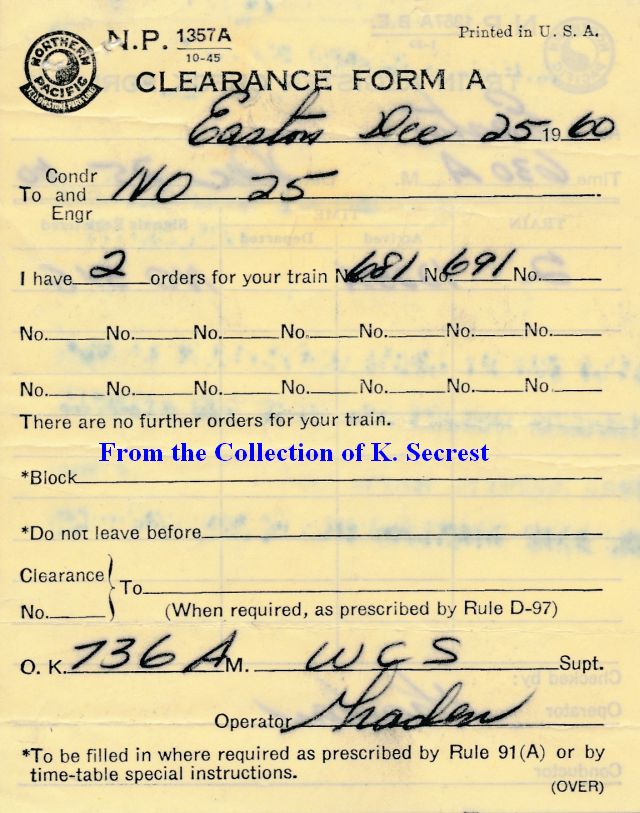 NORTHERN PACIFIC YELLOWSTONE PARK LINE
N.P. 1357A
10-45
Printed in U. S. A.
CLEARANCE FORM A
Easton Dec 25 1960
Condr
To and NO 25
Engr
I have 2 orders for your train No. 681 No. 691 No.
No. No. No. No. No. No. No.
No. No. No. No. No. No. No.
There are no further orders for your train.
From the Collection of K. Secrest
*Block
*Do not leave before
Clearance
To
No.
(When required, as prescribed by Rule D-97)
O. K. 736 A M. W C S Supt.
Operator
*To be filled in where required as prescribed by Rule 91(A) or by
time-table special instructions.
(OVER)